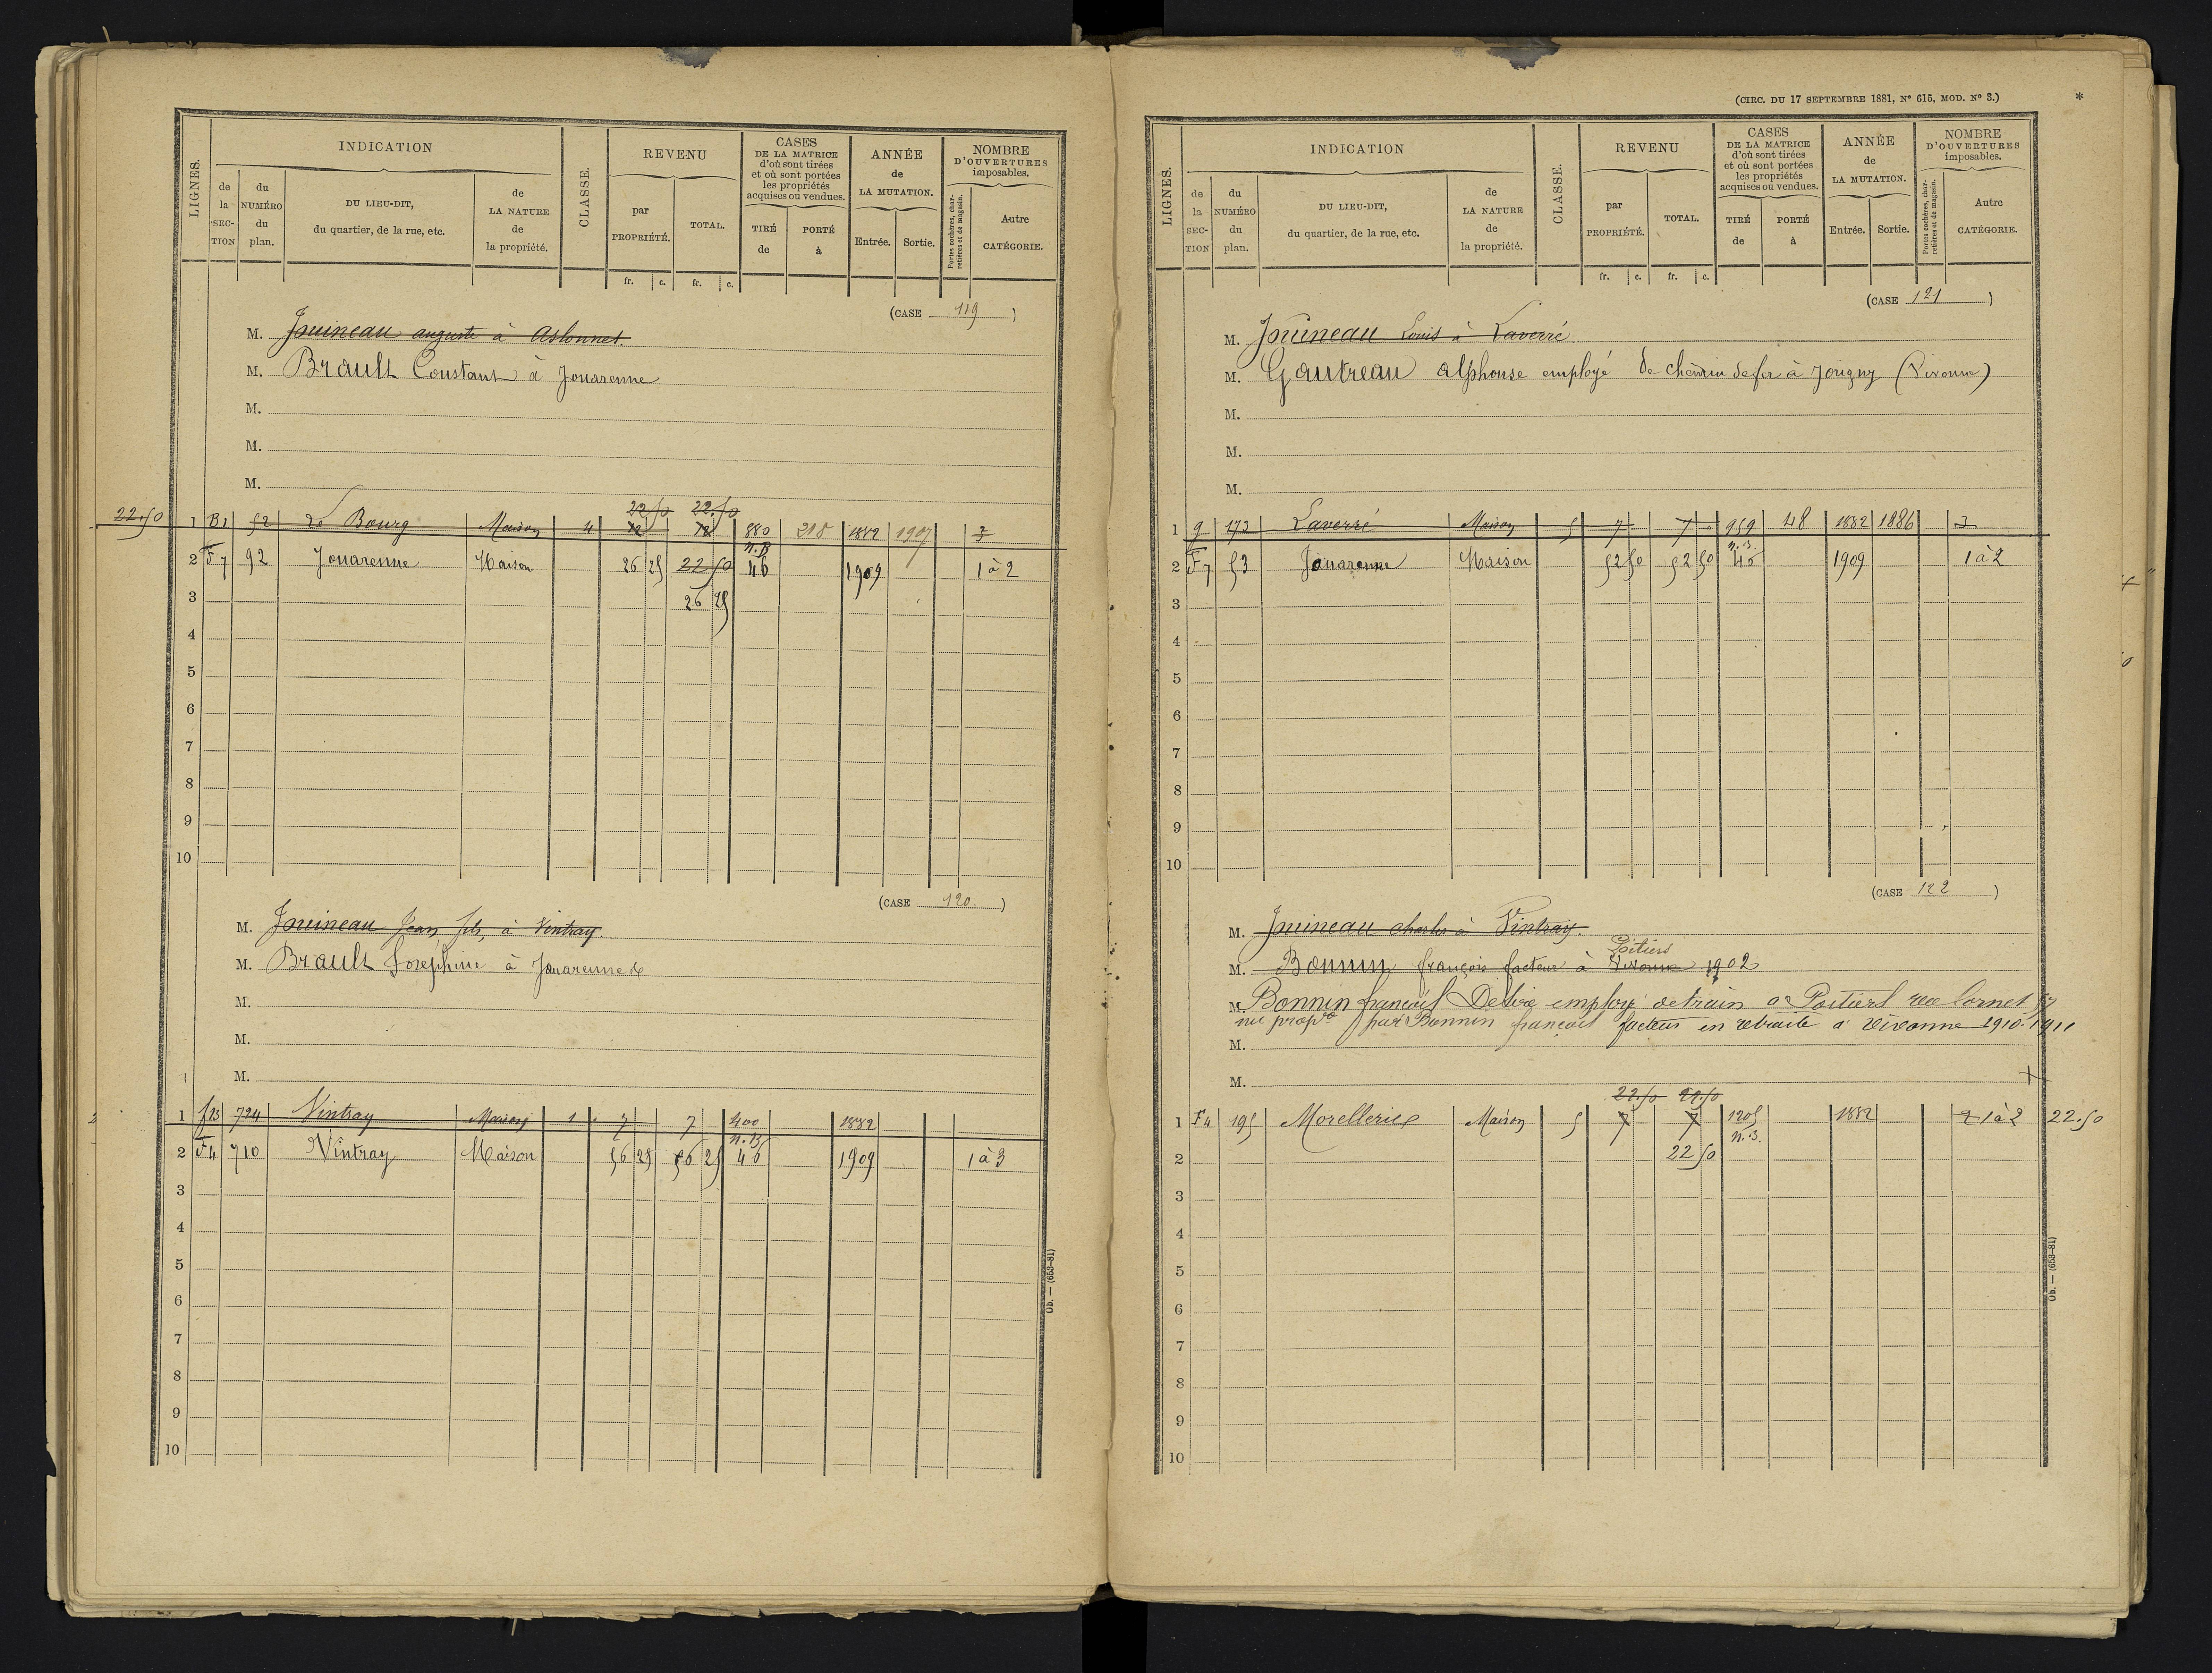 LIGNES.
INDICATION
de la SECTION
du NUMÉRO du plan.
DU LIEU-DIT, du quartier, de la rue, etc.
de LA NATURE de la propriété.
CLASSE.
REVENU
par PROPRIÉTÉ.
TOTAL.
fr. c. fr. c.
CASES DE LA MATRICE d'où sont tirées et où sont portées les propriétés acquises ou vendues.
TIRÉ de
PORTÉ à
ANNÉE de LA MUTATION.
Entrée. Sortie.
NOMBRE D'OUVERTURES imposables.
Portes cochères, charretières et de magasin.
Autre CATÉGORIE.
(CASE 119)
M. Jouineau auguste à Aslonnes.
M. Brault Constant à Jouarenne
M.
M.
M.
22.50 22.50
22.50 1 B1 52 Le Bourg Maison 4 12 12 880 218 1882 1907 3
n.B
2 F7 92 Jouarenne Maison 26 25 22 50 46 1909 1 à 2
3 26 25
4
5
6
7
8
9
10
(CASE 120)
M. Jouineau Jean fils, à Vintray.
M. Brault Joséphine à Jouarenne
M.
M.
M.
1 724 Vintray Maison 1 7 7 400 1882
n.B
2 F4 710 Vintray Maison 56 25 56 25 46 1909 1 à 3
3
4
5
6
7
8
9
10
Ob. — (653-81)
(CIRC. DU 17 SEPTEMBRE 1881, N° 615, MOD. N° 3.) *
LIGNES.
INDICATION
de la SECTION
du NUMÉRO du plan.
DU LIEU-DIT, du quartier, de la rue, etc.
de LA NATURE de la propriété.
CLASSE.
REVENU
par PROPRIÉTÉ.
TOTAL.
fr. c. fr. c.
CASES DE LA MATRICE d'où sont tirées et où sont portées les propriétés acquises ou vendues.
TIRÉ de
PORTÉ à
ANNÉE de LA MUTATION.
Entrée. Sortie.
NOMBRE D'OUVERTURES imposables.
Portes cochères, charretières et de magasin.
Autre CATÉGORIE.
(CASE 121)
M. Jouineau Louis à Laverré
M. Gautreau alphonse employé de chemin de fer à Jorigny (Vivonne)
M.
M.
M.
1 g 173 Laverré Maison 5 7 7 959 48 1882 1886 3
n.B.
2 F7 53 Jouarenne Maison 52 50 52 50 46 1909 1 à 2
3
4
5
6
7
8
9
10
(CASE 122)
M. Jouineau charles à Vintray.
M. Bonnin françois facteur à Vivonne 1902
M. Bonnin francois Desire employé de train a Poitiers rue Cornet
nu prop par Bonnin francois facteur en retraite a vivonne 1910-1911
M.
M.
22.50 22.50
1 F4 195 Morellerie Maison 5 7 7 1205 1882 2 1 à 2 22.50
n.B.
2 22 50
3
4
5
6
7
8
9
10
Ob. — (653-81)